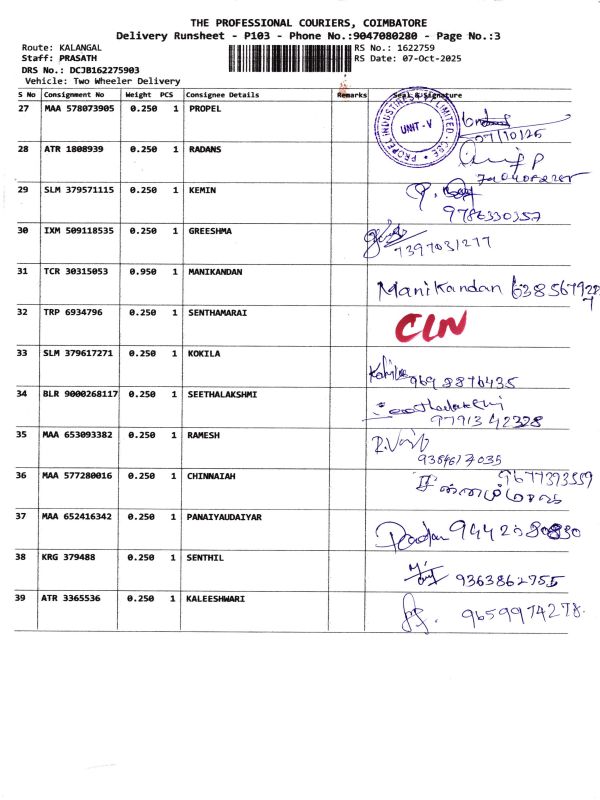 THE PROFESSIONAL COURIERS, COIMBATORE
Delivery Runsheet - P103 - Phone No.:9047080280 - Page No.:3
Route: KALANGAL RS No.: 1622759
Staff: PRASATH RS Date: 07-Oct-2025
DRS No.: DCJB162275903
Vehicle: Two Wheeler Delivery
S No Consignment No Weight PCS Consignee Details Remarks Seal & Signature
27 MAA 578073905 0.250 1 PROPEL
PROPEL INDUSTRIES LIMITED CBE
UNIT-V
07/10/25
28 ATR 1808939 0.250 1 RADANS
29 SLM 379571115 0.250 1 KEMIN
9786330357
30 IXM 509118535 0.250 1 GREESHMA
7397031277
31 TCR 30315053 0.950 1 MANIKANDAN Manikandan
32 TRP 6934796 0.250 1 SENTHAMARAI CLN
33 SLM 379617271 0.250 1 KOKILA
34 BLR 9000268117 0.250 1 SEETHALAKSHMI
9791342328
35 MAA 653093382 0.250 1 RAMESH
9384617035
36 MAA 577280016 0.250 1 CHINNAIAH 9677393559
37 MAA 652416342 0.250 1 PANAIYAUDAIYAR
38 KRG 379488 0.250 1 SENTHIL 9363862755
39 ATR 3365536 0.250 1 KALEESHWARI 9659974278.